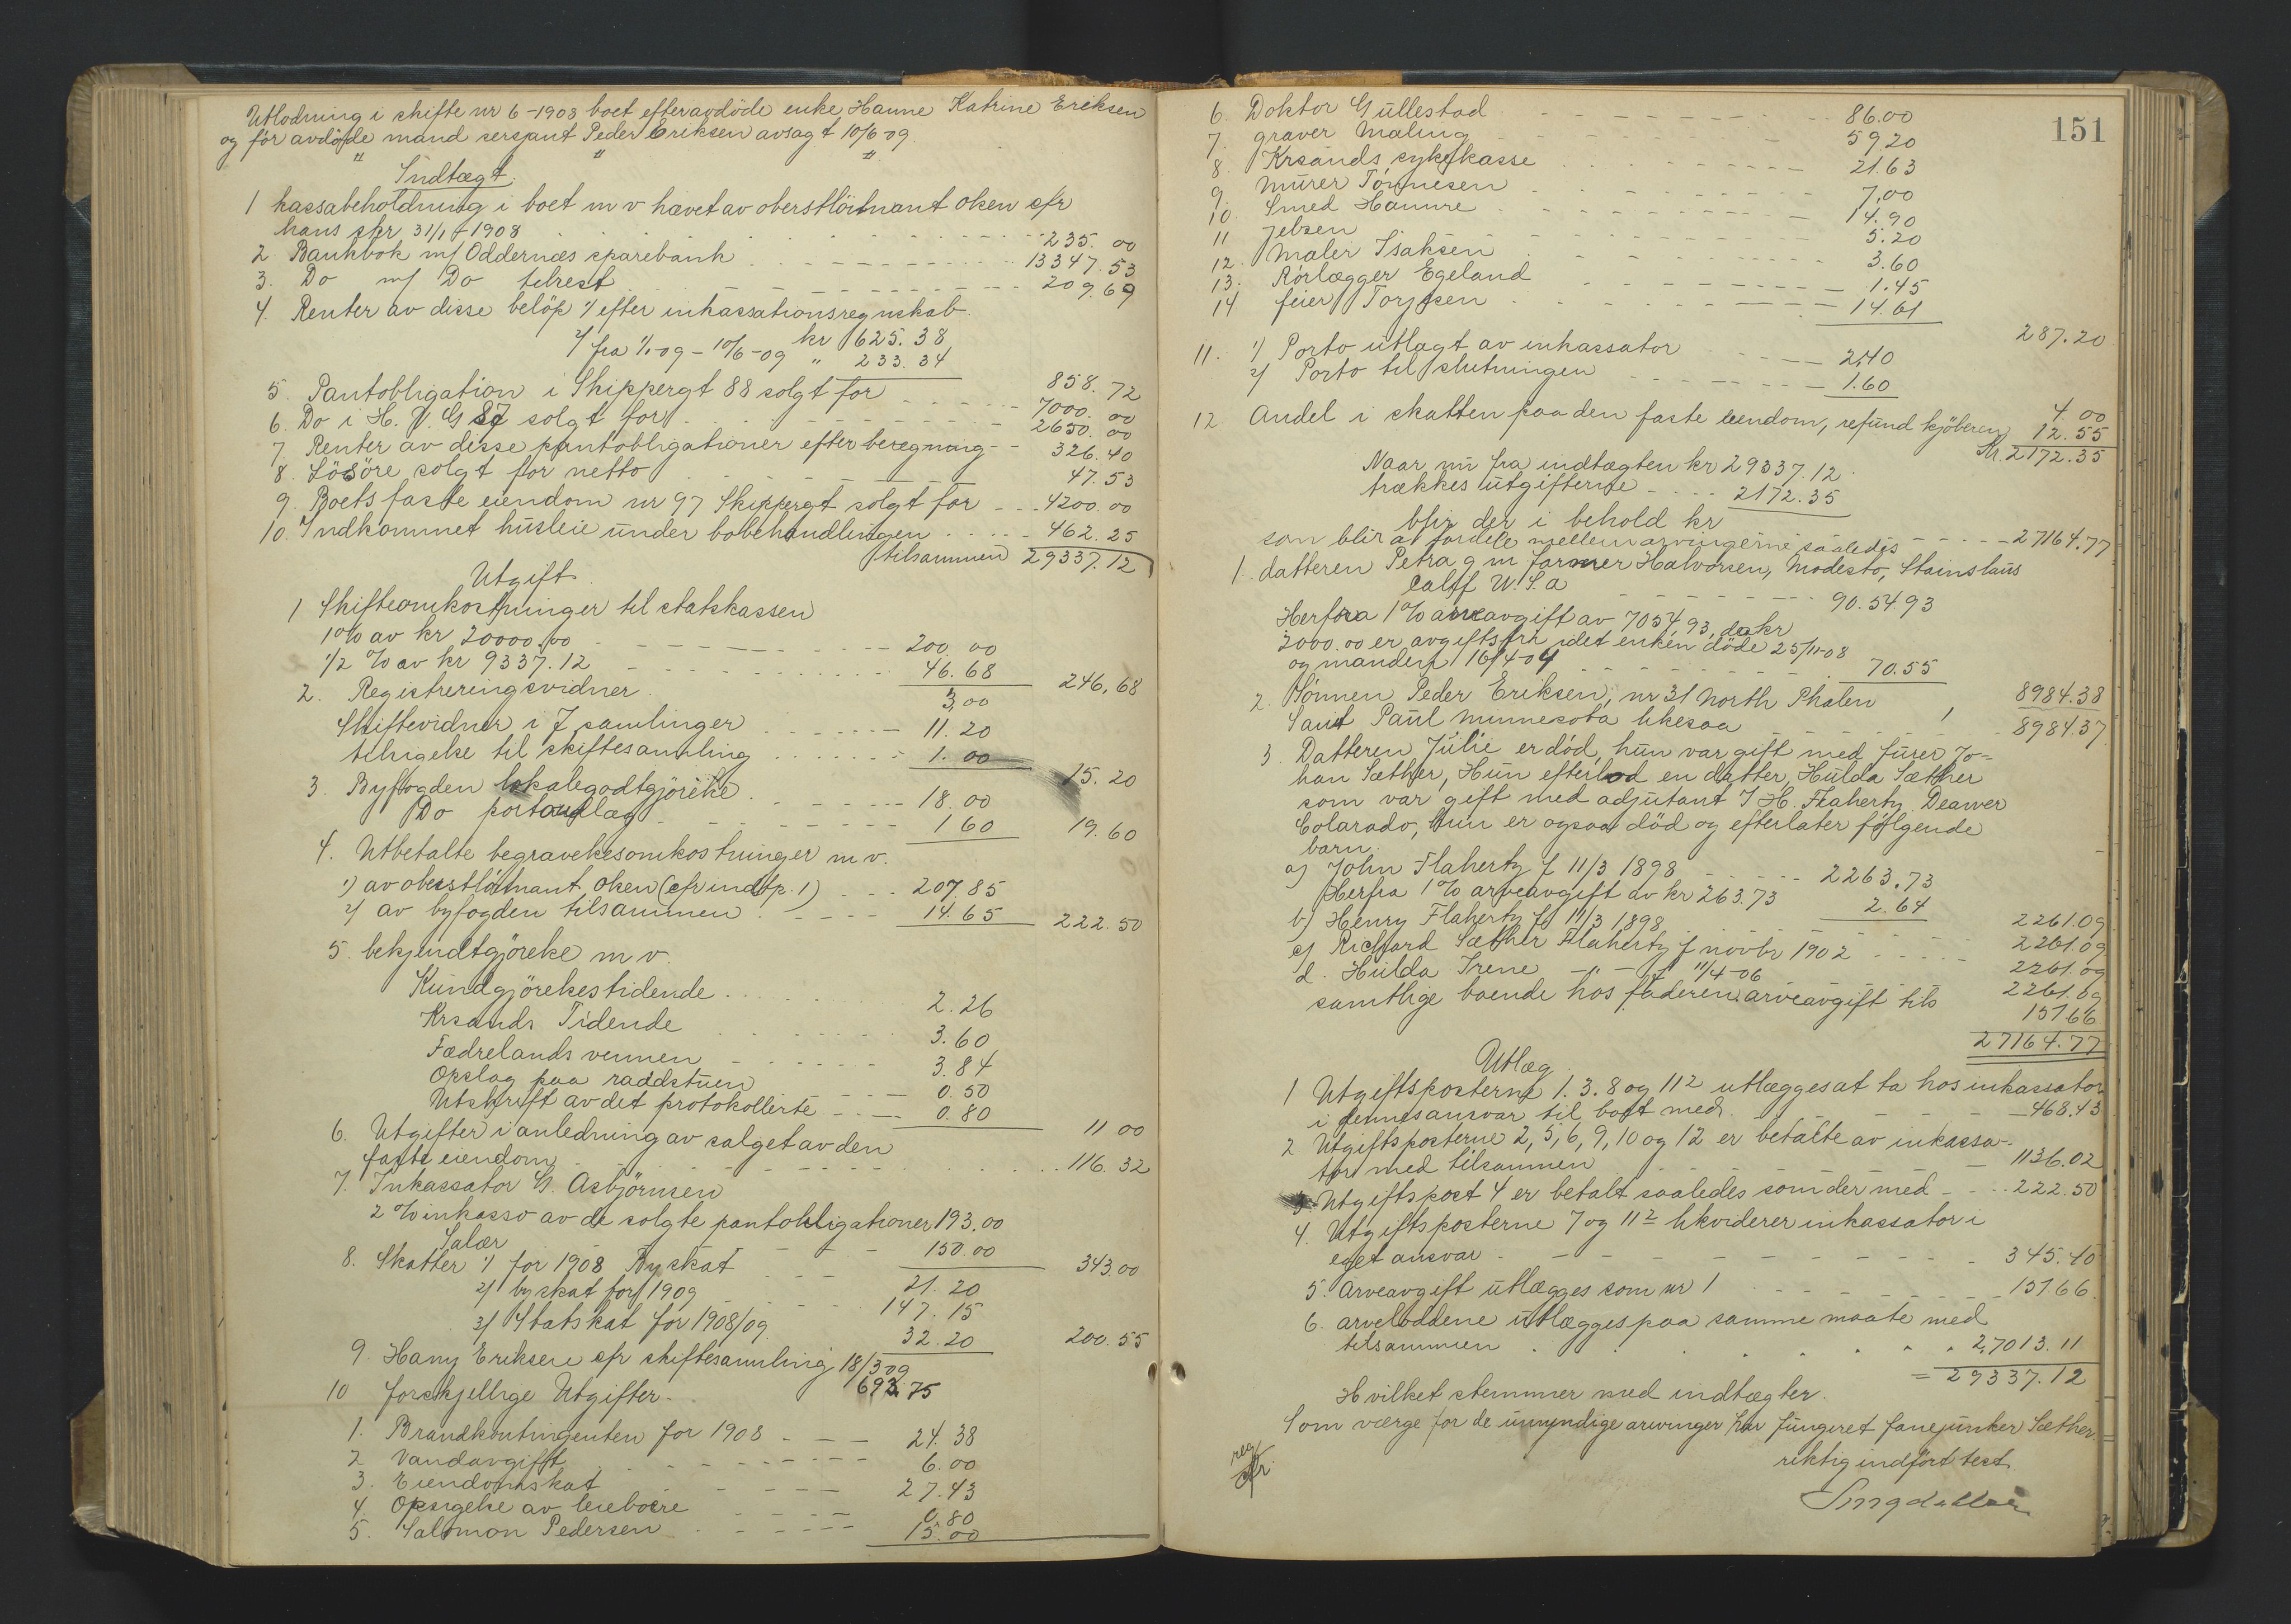 Utlodning i skifte nr 6-1908 boet efter avdöde enke Hanne Katrine Eriksen
og för avdöde mand sersjant Peder Eriksen avsagt 10/6-09.
" " "
Indtægt.
1 kassabeholdning i boet m v hævet av oberstlöitnant Oken cfr
hans skr 31/1-1908 235.00
2 Bankbok m/ Oddernæs sparebank 13347.53
3. Do m/ Do tilrest 209.69
4. Renter av disse belöp 1/ efter inkassationsregnskab
kr 625.38
2/ fra 1/1-09 - 10/6-09 " 233.34
858.72
5. Pantobligation i Skippergt 88 solgt for 7000.00
6. Do i H. V. G 87 solgt for 2650.00
7. Renter av disse pantobligationer efter beregning 326.40
8. Lösöre solgt for netto 47.53
9. Boets faste eiendom nr 97 Skippergt solgt for 4200.00
10. Indkommet husleie under bobehandlingen 462.25
tilsammen 29337.12
Utgift
1 Skifteomkostninger til statskassen
1% av kr 20000.00 200.00
1/2 % av kr 9337.12 46.68
246.68
2. Registreringsvidner 3,00
Skiftevidner i 7 samlinger 11.20
tilsigelse til skiftesamling 1.00
15.20
3. Byfogden lokalegodtgjörelse 18.00
Do portoutlæg 1 60
19.60
4. Utbetalte begravelsesomkostninger m v.
1) av oberstlöitnant Oken (cfr indtp. 1) 207.85
2/ av byfogden tilsammen 14.65
222.50
5. bekjendtgjörelse m v.
Kundgjörelsestidende 2.26
Krsands Tidende 3.60
Fædrelandsvennen 3.84
Opslag paa raadstuen 0.50
Utskrift av det protokollerte 0.80
11 00
6. Utgifter i anledning av salget av den
faste eiendom 116.32
7. Inkassator G. Asbjörnsen
2 % inkasso av de solgte pantobligationer 193.00
Salær 150.00
343.00
8. Skatter 1/ for 1908 Byskat 21.20
2/ byskat for 1909 147.15
3/ Statskat for 1908/09 32.20
200.55
9. Hany Eriksen cfr skiftesamling 18/3 09
693.75
10 forskjellige Utgifter.
1. Brandkontingenten for 1908 24.38
2 Vandavgift 6.00
3. Eiendomskat 27.43
4. Opsigelse av leieboere 0.80
5. Salomon Pedersen 15.00
151
6. Doktor Gullestad 86.00
7. graver Maling 59.20
8. Krsands sykekasse 21.63
9. Murer Tönnesen 7,00
10. Smed Hamre 14.90
11 Jebsen 5.20
12. Maler Isaksen 3.60
13. Rörlægger Egeland 1.45
14 feier Torjesen 14.61
287.20
11. 1/ Porto utlagt av inkassator 2,40
2/ Porto til slutningen 1.60
4.00
12 Andel i skatten paa den faste eiendom, refund kjöberen 12.55
Kr. 2172.35
Naar nu fra indtægten kr 29337.12
trækkes utgifterne 2172.35
blir der i behold kr 27164.77
som blir at fordele mellem arvingerne saaledes
1. datteren Petra g m farmer Halvorsen, Modesto, Stainslaus
Calif U. S. a 90.54.93
Herfra 1% arveavgift av 7054,93, da kr
2000.00 er avgiftsfri idet enken döde 25/11-08
og manden 16/4-04 70.55
8984.38
2. Sönnen Peder Eriksen, nr 31 North Phalen
Saint Paul Minnesota likesaa 8984.37
3. Datteren Julie er död, hun var gift med furer Jo-
han Sæther, Hun efterlod en datter, Hulda Sæther
som var gift med adjutant J H. Flaherty Deanver
Colarado, hun er ogsaa död og efterlater fölgende
barn.
a) John Flaherty f 11/3 1898 2263.73
Herfra 1% arveavgift av kr 263.73 2.64
2261.09
b) Henry Flaherty f. 11/3 1898 2261.09
c) Richard Sæther Flaherty f novbr 1902 2261.09
d. Hulda Irene - " - f 11/4-06 2261.09
samtlige boende hos faderen arveavgift tils 151.66
27164.77
Utlæg.
1 Utgiftsposterne 1. 3. 8 og 11² utlægges at ta hos inkassator
i dennes ansvar til boet med 468.43
2 Utgiftsposterne 2, 5, 6, 9, 10 og 12 er betalte av inkassa-
tor med tilsammen 1136.02
3. Utgiftspost 4 er betalt saaledes som der med 222.50
4. Utgiftsposterne 7 og 11² likviderer inkassator i
eget ansvar 345.40
5. Arveavgift utlægges som nr 1 151.66
6. arveloddene utlægges paa samme maate med
tilsammen 27013.11
= 29337.12
Hvilket stemmer med indtægter.
Som værge for de umyndige arvinger har fungeret fanejunker Sæther.
riktig indfört test.
reg
cfr.